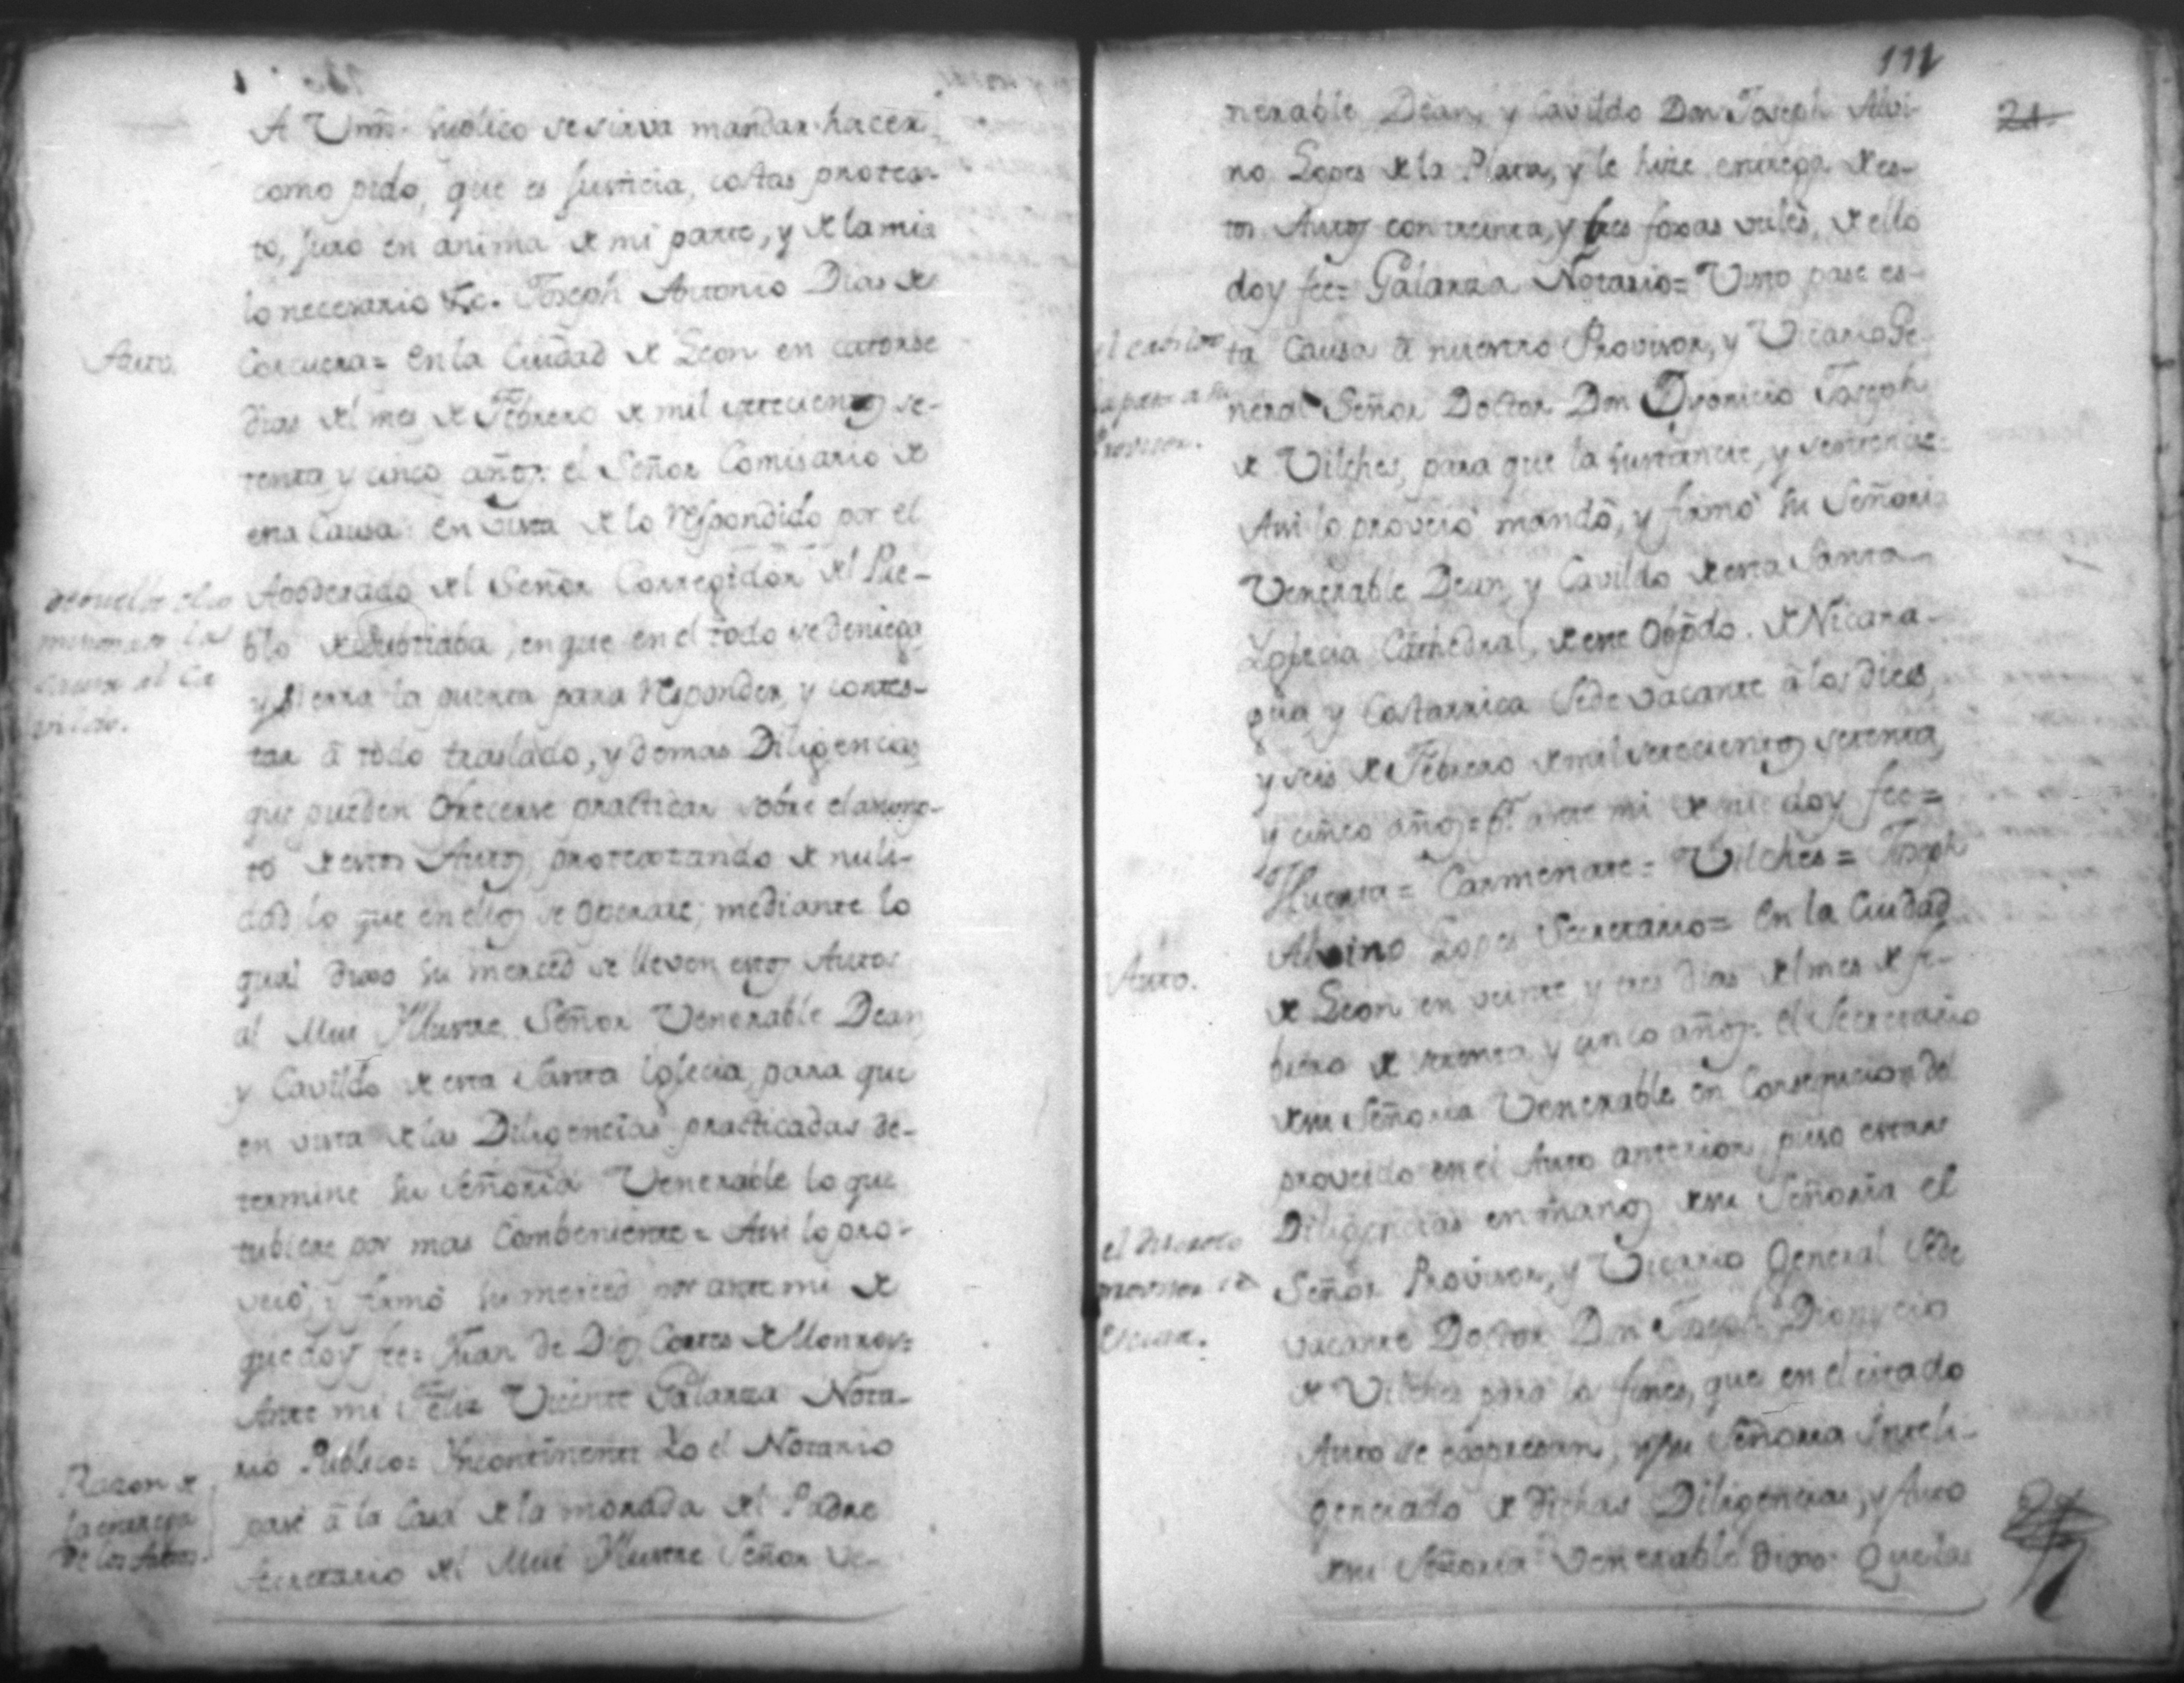 A Vmd. suplico se sirva mandar hacer
como pido, que es Justicia, costas protes-
to, juro en anima de mi parte, y de la mia
lo necesario &c. Joseph Antonio Dias de
Auto.
Corcuera= En la Ciudad de Leon en catorse
dias del mes de Febrero de mil setecientos se-
tenta y cinco años: el Señor Comisario de
esta Causa en vista de lo respondido por el
Apoderado del Señor Corregidor del Pue-
blo de Subtiaba, en que en el todo se deniega
y sierra la puerta para responder, y contes-
tar à todo traslado, y demas Diligencias
que pueden ofrecerse practicar sobre el asump-
to de estos Autos, protextando de nuli-
dad lo que en ellos se operare; mediante lo
qual dixo su merced se lleven estos Autos
al Mui Yllustre Señor Venerable Dean
y Cavildo de esta Santa Iglecia, para que
en vista de las Diligencias practicadas de-
termine su Señoria Venerable lo que
tubiere por mas Combeniente= Assi lo pro-
veió, y firmó su merced por ante mi de
que doy fee= Juan de Dios Cortes de Monroy=
Ante mi Felix Vicente Galarza Nota-
rio Publico= Yncontinenti Yo el Notario
pasé à la Casa de la morada del Padre
Secretario del Mui Yllustre Señor Ve-
Razon de
la entrega
de los Autos.
111
21.
nerable Dean, y Cavildo Don Joseph Alvi-
no Lopes de la Plata, y le hize entrega de es-
tos Autos con treinta, y tres foxas utiles, de ello
doy fee= Galarza Notario= Visto pase es-
el cavildo
la pasa a su
Provisor.
ta Causa à nuestro Provisor, y Vicario Ge-
neral Señor Doctor Don Dyonicio Joseph
de Vilches, para que la sustancie, y sentencie
Assi lo proveió mandó, y firmó su Señoria
Venerable Dean, y Cavildo de esta Santa
Yglecia Cathedral, de este Obpdo. de Nicara-
gua, y Costarrica Sede vacante à los dies,
y seis de Febrero de mil setecientos setenta,
y cinco años= pr. ante mi de que doy fee=
Huerta= Carmenate= Vilches= Joseph
Alvino Lopes Secretario= En la Ciudad
Auto.
de Leon en veinte, y tres dias del mes de fe-
brero de setenta, y cinco años: el Secretario
de su Señoria Venerable en Consequcion del
proveido en el Auto anterior, puso estas
Diligencias en manos de su Señoria el
Señor Provisor, y Vicario General Sede
vacante Doctor Don Joseph Dionycio
de Vilches para los fines, que en el citado
Auto se expresan, y su Señoria Inteli-
genciado de dichas Diligencias, y Auto
de su Señoria Venerable dixo: Que las